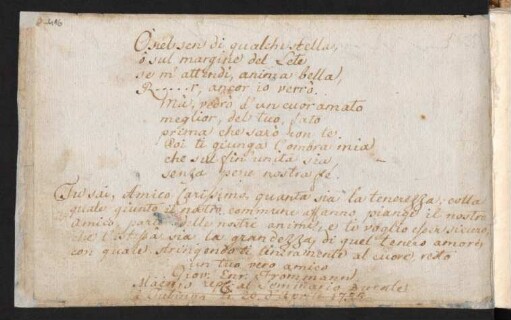 O nel sen di qualche stella,
o sul margine del Lete
se m'attendi, anima bella,
R......r, ancor io verrò.
Mà, vedrò d'un cuor amato
meglior, del tuo, fato
prima che sarò con te.
Poi ti giunga l'ombra mia
che sul fin' unita sia
senza pene nostra fè.
Tu sai, Amico carissimo, quanta sia la tenerezza, colla
quale giunto il nostro commune affanno, piange il nostro
amico, delle nostre anime, e te voglio esser sicuro,
che sia la grandezza di quel tenero amor,
con quale stringendoti teneramente al cuore, redo
un tuo vero amico
Giov. Enr. Frommann
al Seminario Ducale